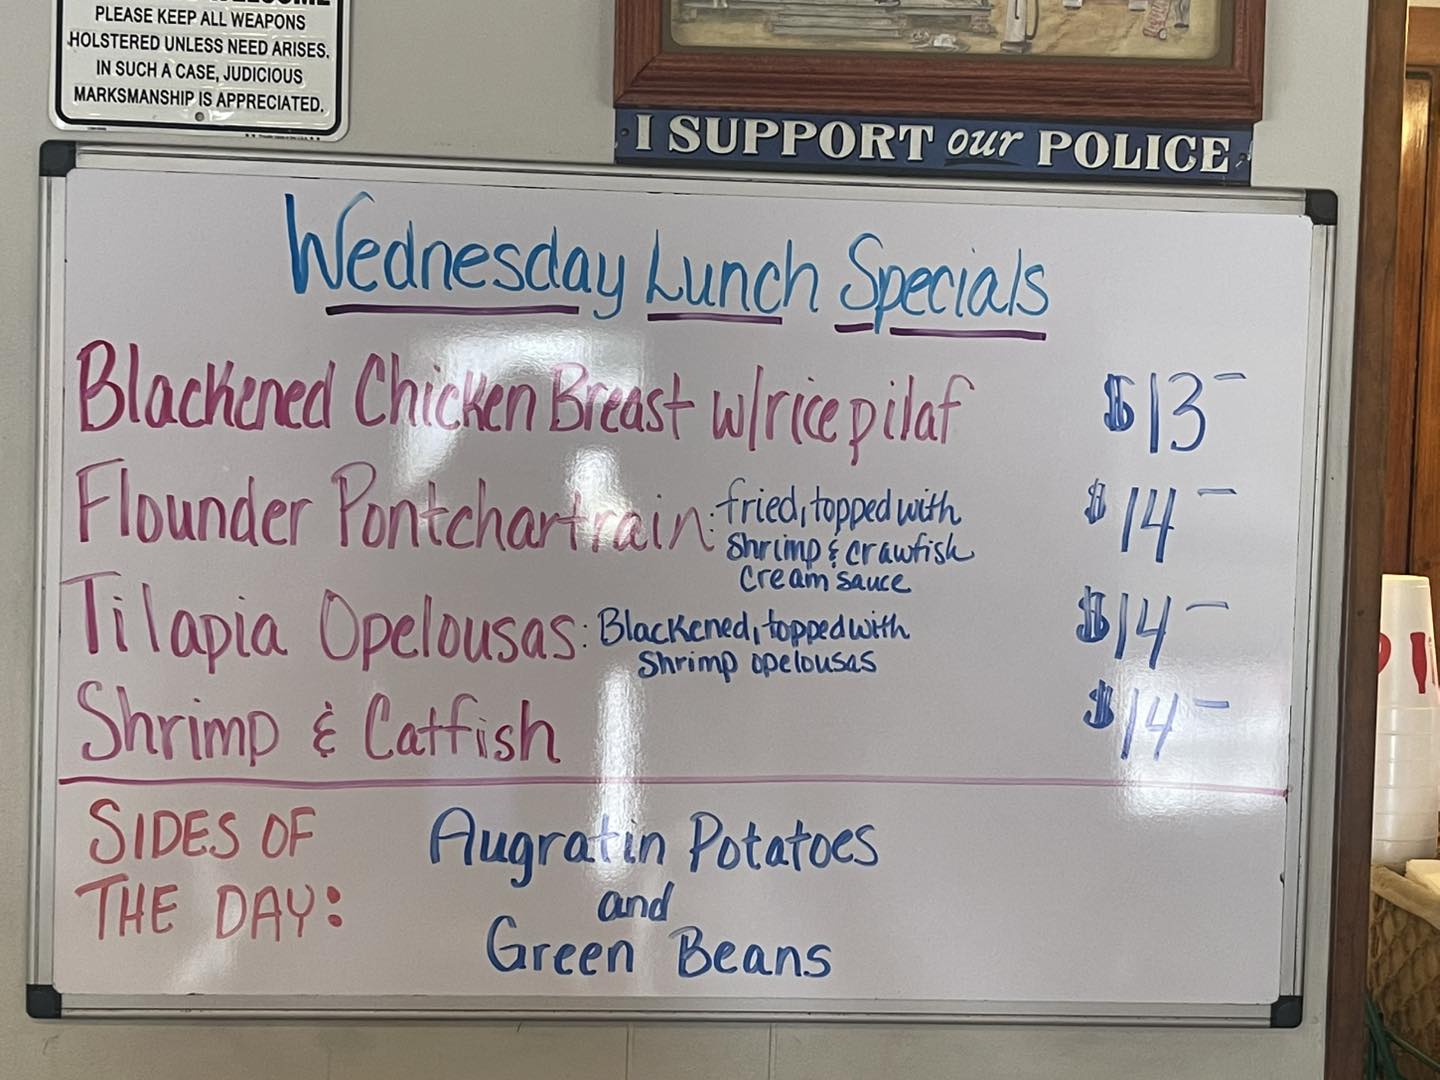 WELCOME
PLEASE KEEP ALL WEAPONS
HOLSTERED UNLESS NEED ARISES.
IN SUCH A CASE, JUDICIOUS
MARKSMANSHIP IS APPRECIATED.
I SUPPORT our POLICE
Wednesday Lunch Specials
Blackened Chicken Breast w/rice pilaf $13-
Flounder Pontchartrain: fried, topped with $14-
Shrimp & crawfish
cream sauce
Tilapia Opelousas: Blackened, topped with $14-
Shrimp opelousas
Shrimp & Catfish $14-
SIDES OF
THE DAY:
Augratin Potatoes
and
Green Beans